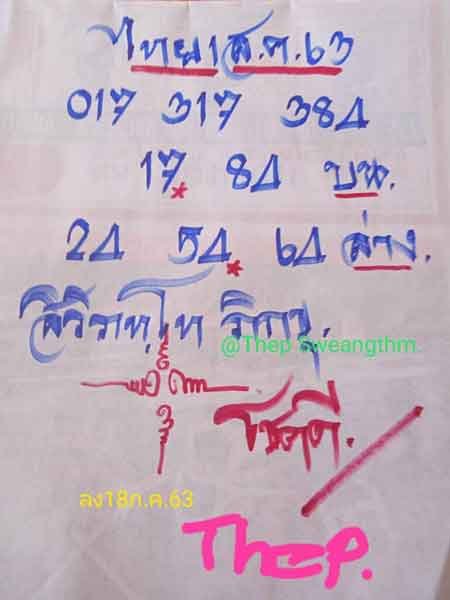 ไทย 1 ส.ค. 63
017 317 384
17* 84 บน.
24 54* 64 ล่าง.
@Thep Sweangthm.
โชคดี.
ลง18ก.ค.63
Thep.